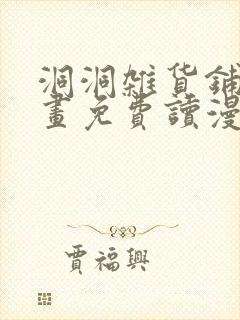 洞洞雑货鋪
畫免費讀漫
賈福興